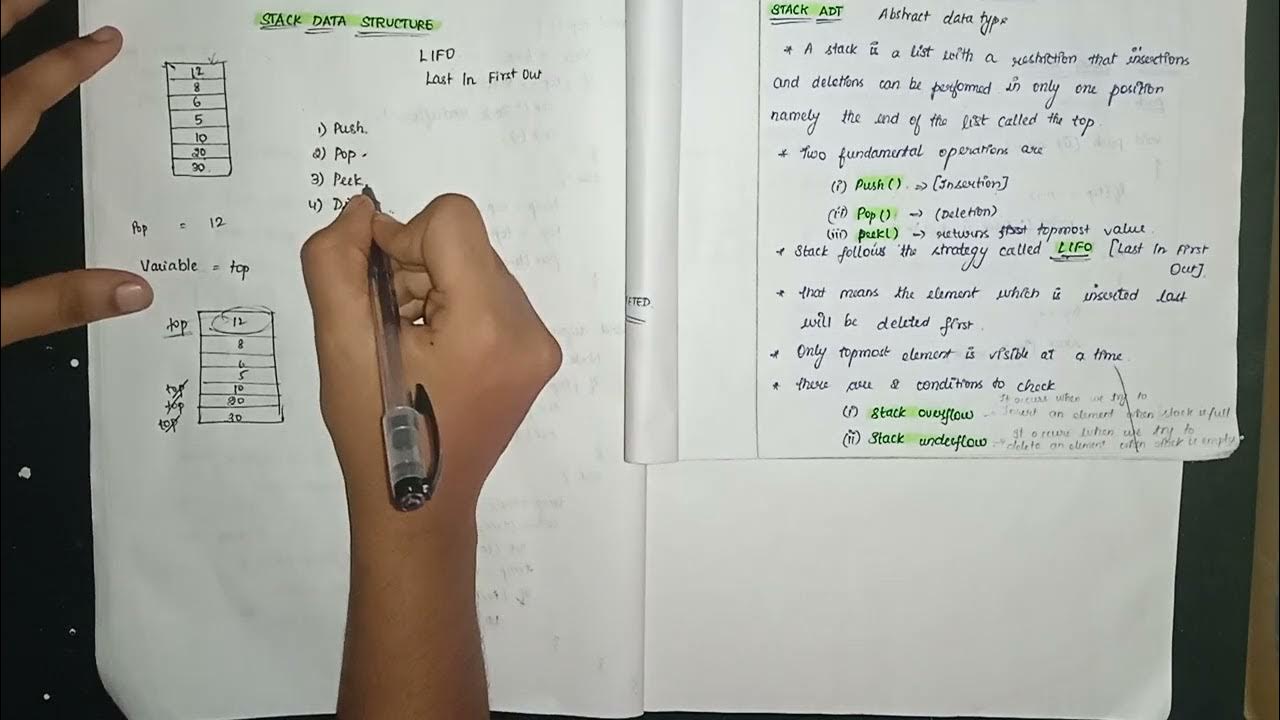 STACK DATA STRUCTURE
LIFO
Last In First Out
12
8
6
5
10
20
30
1) Push
2) Pop
3) Peek
4)
Pop = 12
Variable = top
top
12
8
6
5
10
20
30
top
top
top
STACK ADT Abstract data type
* A stack is a list with a restriction that insertions
and deletions can be performed in only one position
namely the end of the list called the top.
* Two fundamental operations are
(i) Push() => [Insertion]
(ii) Pop() → (Deletion)
(iii) peek() → returns topmost value.
* Stack follows the strategy called LIFO [Last In First
Out].
* that means the element which is inserted last
will be deleted first.
* Only topmost element is visible at a time.
* there are 2 conditions to check
(i) Stack overflow - It occurs when we try to
insert an element when stack is full
(ii) Stack underflow → It occurs when we try to
delete an element when stack is empty.